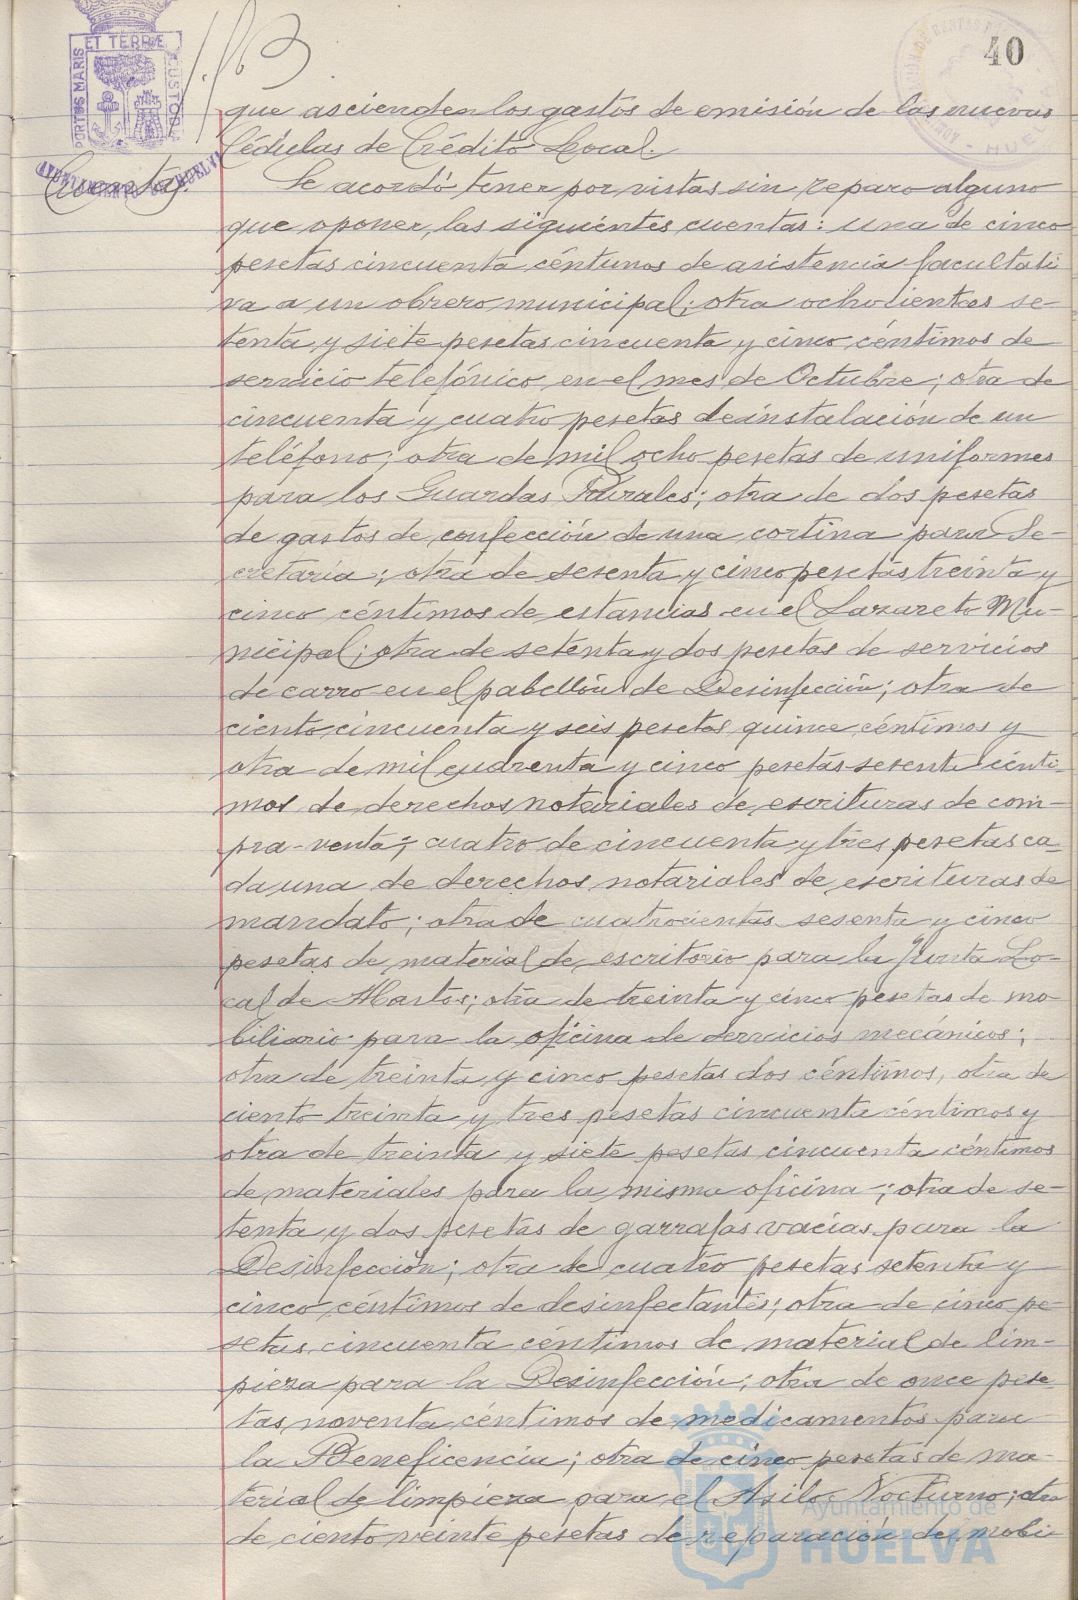 40
PORTUS MARIS ET TERRÆ CUSTODIA
AYUNTAMIENTO DE HUELVA
que ascienden los gastos de emisión de las nuevas
Cédulas de Crédito Local.
Cuentas.
Se acordó tener por vistas sin reparo alguno
que oponer, las siguientes cuentas: una de cinco
pesetas cincuenta céntimos de asistencia facultati-
va a un obrero municipal; otra ochocientas se-
tenta y siete pesetas cincuenta y cinco céntimos de
servicio telefónico en el mes de Octubre; otra de
cincuenta y cuatro pesetas de instalación de un
teléfono; otra de mil ocho pesetas de uniformes
para los Guardas Rurales; otra de dos pesetas
de gastos de confección de una cortina para Se-
cretaría; otra de sesenta y cinco pesetas treinta y
cinco céntimos de estancias en el Lazareto Mu-
nicipal; otra de setenta y dos pesetas de servicios
de carro en el pabellón de Desinfección; otra de
ciento cincuenta y seis pesetas quince céntimos y
otra de mil cuarenta y cinco pesetas sesenta cénti-
mos de derechos notariales de escrituras de com-
pra-venta; cuatro de cincuenta y tres pesetas ca-
da una de derechos notariales de escrituras de
mandato; otra de cuatrocientas sesenta y cinco
pesetas de material de escritorio para la Junta Lo-
cal de Abastos; otra de treinta y cinco pesetas de mo-
biliario para la oficina de servicios mecánicos;
otra de treinta y cinco pesetas dos céntimos, otra de
ciento treinta y tres pesetas cincuenta céntimos y
otra de treinta y siete pesetas cincuenta céntimos
de materiales para la misma oficina; otra de se-
tenta y dos pesetas de garrafas vacías para la
Desinfección; otra de cuatro pesetas setenta y
cinco céntimos de desinfectantes; otra de cinco pe-
setas cincuenta céntimos de material de lim-
pieza para la Desinfección; otra de once pese-
tas noventa céntimos de medicamentos para
la Beneficencia; otra de cinco pesetas de ma-
terial de limpieza para el Asilo Nocturno; otra
de ciento veinte pesetas de reparación de mobi-
Ayuntamiento de
HUELVA